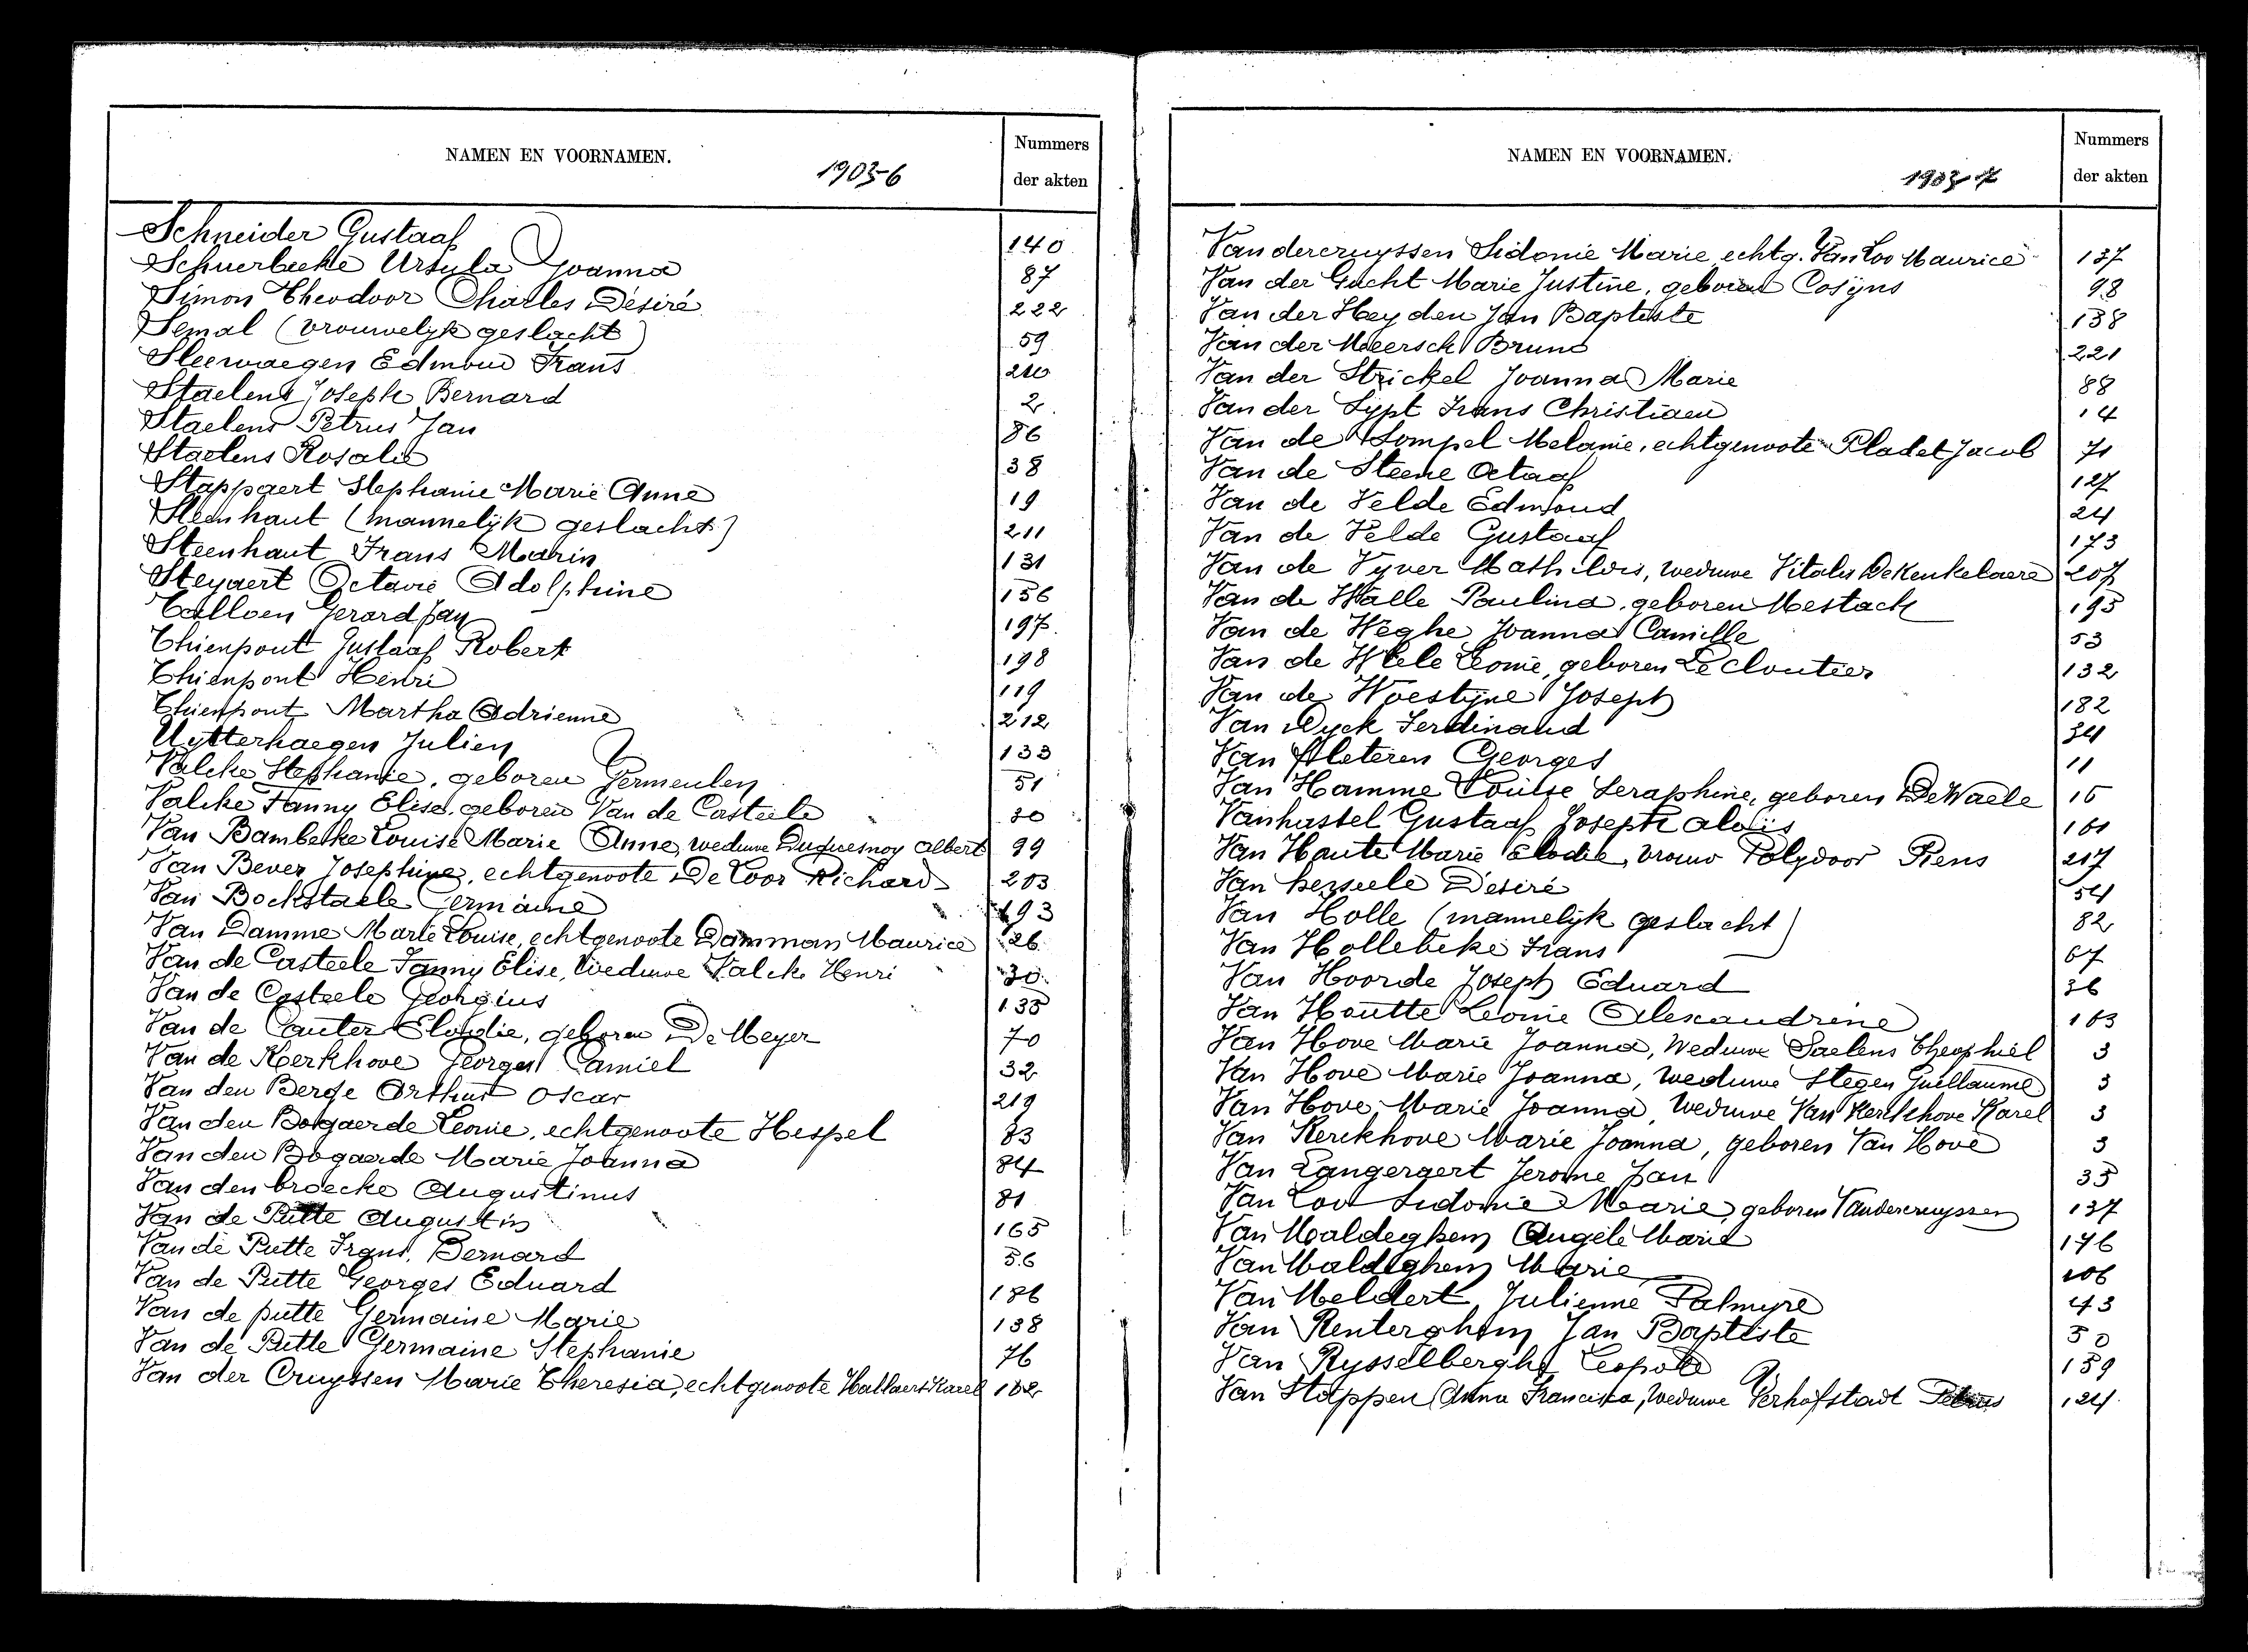 NAMEN EN VOORNAMEN.
1903-6
Nummers
der akten
Schneider Gustaaf 140
Schuerbeeke Ursula Joanna 87
Simon Theodoor Charles Désiré 222
Semal (vrouwelyk geslacht) 59
Sleewaegen Edmond Frans 210
Staelens Joseph Bernard 2
Staelens Petrus Jan 86
Staelens Rosalie 38
Stappaert Stephanie Marie Anne 19
Steenhaut (mannelyk geslacht) 211
Steenhaut Frans Marin 131
Steyaert Octavie Adolphine 156
Talloen Gerard Jan 197
Thienpont Gustaaf Robert 198
Thienpont Henri 119
Thienpont Martha Adrienne 212
Uytterhaegen Julien 133
Valcke Stephanie, geboren Vermeulen 51
Valcke Fanny Elise, geboren Van de Casteele 30
Van Bambeke Louise Marie Anne, weduwe Duquesnoy Albert 99
Van Bever Josephine, echtgenoote De Loor Richard 203
Van Bockstaele Germaine 193
Van Damme Marie Louise, echtgenoote Damman Maurice 26
Van de Casteele Fanny Elise, Weduwe Valcke Henri 30
Van de Casteele Georgius 135
Van de Cauter Elodie, geboren De Meyer 70
Van de Kerkhove Georges Camiel 32
Van den Berge Arthur Oscar 219
Van den Bogaerde Leonie, echtgenoote Hespel 83
Van den Bogaerde Marie Joanna 84
Van den broecke Augustinus 81
Van de Putte Augustin 165
Van de Putte Frans Bernard 56
Van de Putte Georges Eduard 186
Van de putte Germaine Marie 138
Van de Putte Germaine Stephanie 76
Van der Cruyssen Marie Theresia, echtgenoote Hallaert Karel 162
NAMEN EN VOORNAMEN.
1903-7
Nummers
der akten
Vandercruyssen Sidonie Marie echtg. Van Loo Maurice 137
Van der Gucht Marie Justine, geboren Cosyns 98
Van der Heyden Jan Baptiste 138
Van der Meersch Bruno 221
Van der Strickel Joanna Marie 88
Van der Sypt Frans Christiaen 14
Van de Sompel Melanie, echtgenoote Pladet Jacob 71
Van de Steene Octaaf 127
Van de Velde Edmond 24
Van de Velde Gustaaf 173
Van de Vyver Mathildis, weduwe Vitalis De Kenkelaere 207
Van de Walle Paulina, geboren Mestach 195
Van de Weghe Joanna Camille 53
Van de Wiele Leonie, geboren Le Cloutier 132
Van de Woestyne Joseph 182
Van Dyck Ferdinand 34
Van Fleteren Georges 11
Van Hamme Louise Seraphine, geboren De Waele 15
Vanhastel Gustaaf Joseph aloïs 161
Van Haute Marie Elodie, vrouw Polydoor Piens 217
Van herseele Désiré 54
Van Holle (mannelyk geslacht) 82
Van Hollebeke Frans 67
Van Hoorde Joseph Eduard 36
Van Houtte Leonie Alexandrine 163
Van Hove Marie Joanna, Weduwe Saelens Theophiel 3
Van Hove Marie Joanna, weduwe Stegen Guillaume 3
Van Hove Marie Joanna, Weduwe Van Kerckhove Karel 3
Van Kerckhove Marie Joanna, geboren Van Hove 3
Van Langeraert Jerome Jan 35
Van Loo Sidonie Marie, geboren Vandercruyssen 137
Van Maldeghem Angèle Marie 176
Van Maldeghem Marie 106
Van Meldert Julienne Palmyre 43
Van Renterghem Jan Baptiste 50
Van Rysselberghe Leopold 159
Van Stappen Anna Francisca, Weduwe Verhofstadt Petrus 124